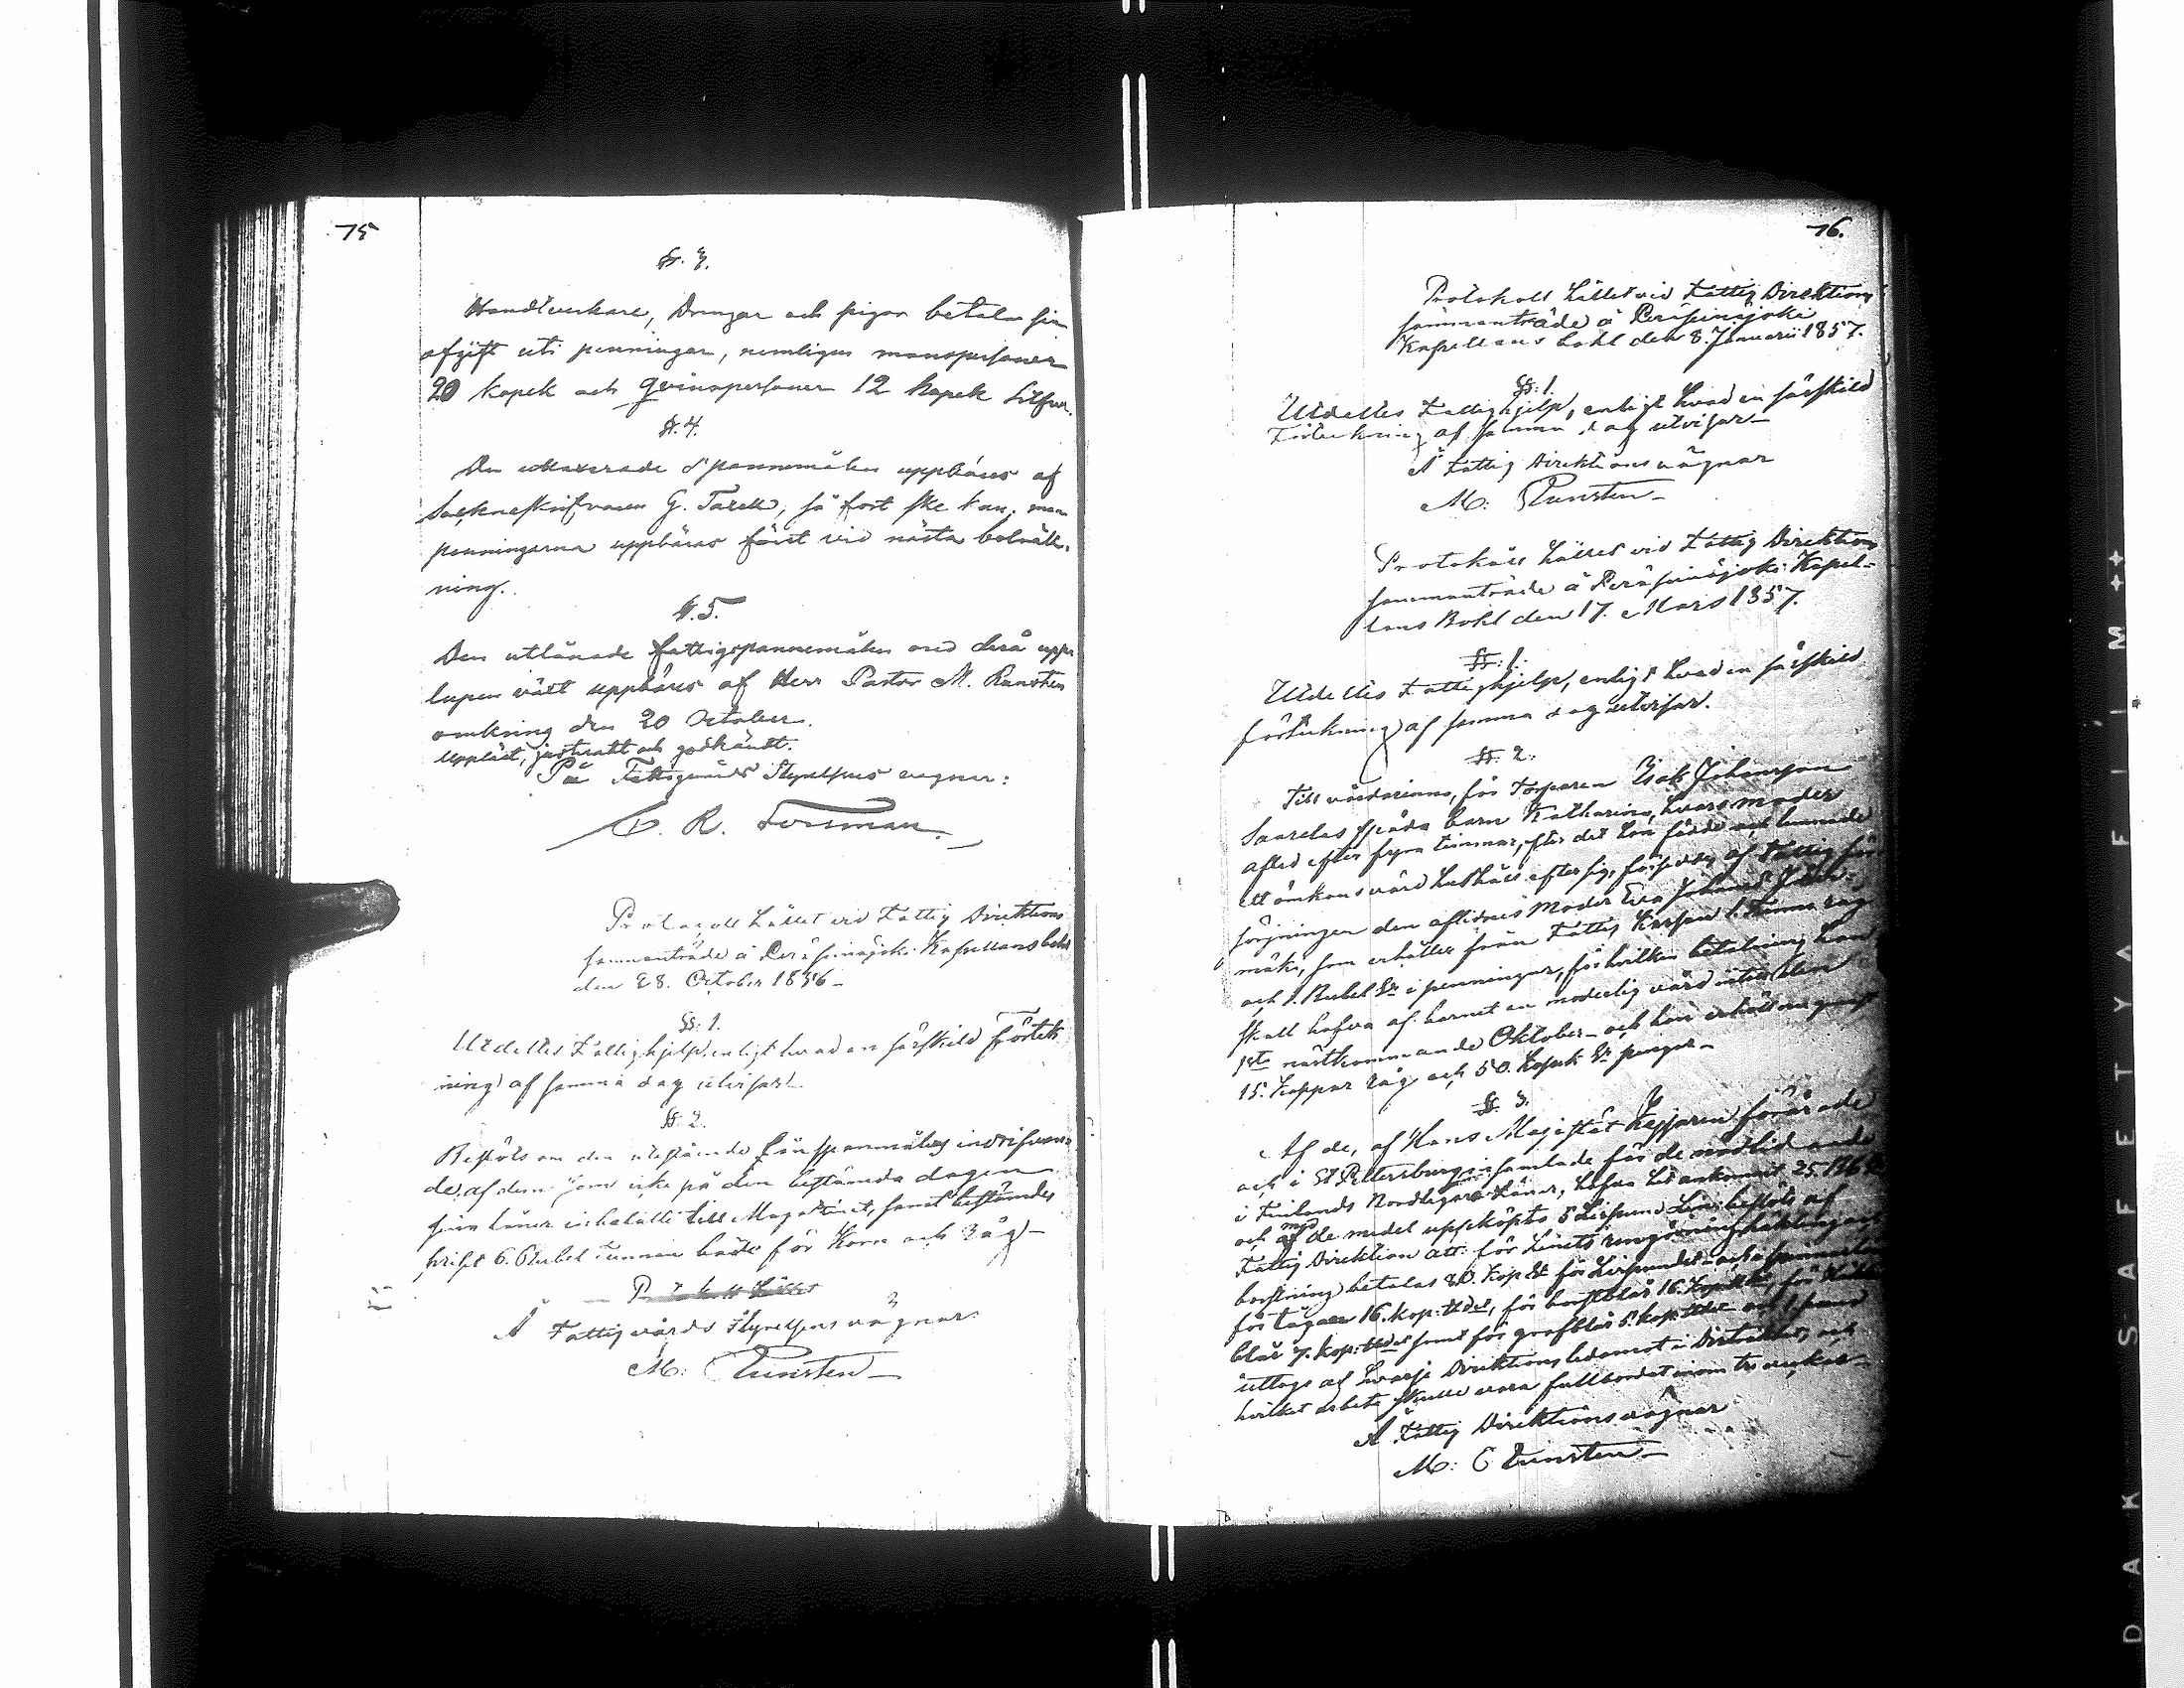 75
§. 3.
Handtverkare, Drengar och pigor betala sin
afgift uti penningar, nemligen manspersoner
20 kopek och qvinspersoner 12 kopek Silfver.
§. 4.
Den uttaxerade Spannemålen uppbäres af
Sockneskrifvaren G. Tarell, så fort ske kan, men
penningarna uppbäras först vid nästa bolräk-
ning.
§. 5.
Den utlånade fattigspannemålen med derå upp-
lupen växt uppbäres af Herr Pastor M. Runsten
omkring den 20 October.
Uppläst, justeradt och godkändt.
På Fattigvårds Styrelsens vegnar:
C. R. Forsman.
Protocoll hållet vid Fattig Direktions
sammanträde å Peräseinäjoki Kapellans bohl
den 28. October 1856
§: 1.
Utdeltes Fattighjelp, enligt hvad en särskild förtek
ning af samma dag utvisar.
§: 2.
Beslöts om den utestående Lånspanmålens indrifvan-
de, af dem som icke på den bestämda dagen
sina låner inbetalt till Magasinet, samt bestämdes
priset 6. Rubel Tunnan både för Korn och Råg
Protokoll hållet
Å Fattigvårds Styrelsens vägnar
M: Runsten
76.
Protokoll hållet vid Fattig Direktions
sammanträde å Peräseinäjoki
Kapellans bohl den 8. Januarii 1857.
§: 1.
Utdeltes Fattighjelp, enligt hvad en särskild
Förteckning af samma dag utvisar
Å Fattig Direktions vägnar
M: Runsten
Protokoll hållet vid Fattig Direktions
sammanträde å Peräseinäjoki Kapel-
lans Bohl den 17. Mars 1857.
§: 1.
Utdeltes Fattighjelp, enligt hvad en särskild
förteckning af samma dag utvisar.
§: 2.
Till vårdarinna, för Torparen Isak Johansson
Saarelas späda barn Katharina, hvars moder
afled efter fyra timmar, efter det hon födde och lemnade
ett ömkansvärd hushåll efter sig, af Fattig för-
sörjningen den aflidnes Moder Eva
mäki, som erhåller från Fattig Kassan 1. Tunna råg
och 1. Rubel Sr i penningar, för hvilken betalning hon
skall hafva af barnet en moderlig vård intill den
1sta nästkommande Oktober och hon erhöll nu genast
15. Kappar råg och 50. Kopek Sr pengar
§: 3.
Af de, af Hans Majestät Kejsaren förärade
och i St Petersburg insamlade för de nödlidande
i Finlands Nordligare Läner, hafva hit ankommit 25. Rbl
och med de medel uppköpts 5 Lispund Lin, beslöts af
Fattig Direktion att för Linets häckling och
borstning betalas 80. Kop Sr för Lispundet och
för tågan 16. kop: för borstblår 16. för
blår 7. kop: samt för grofblår 5. kop: och
uttogs af hvarje Direktions ledamot i Distriktet, och
hvilket arbete skulle vara fullbordat inom tre veckor.
Å Fattig Direktions vägnar
M: Runsten
DAK SAFETY A FILM ++